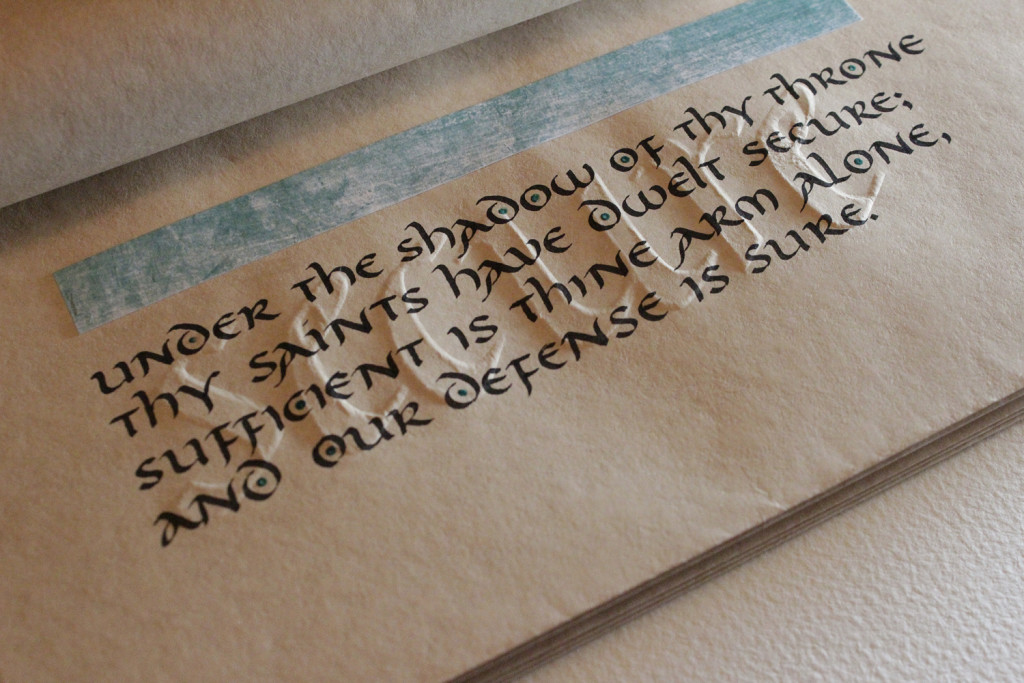 UNDER THE SHADOW OF THY THRONE
THY SAINTS HAVE DWELT SECURE;
SUFFICIENT IS THINE ARM ALONE,
AND OUR DEFENSE IS SURE.
secure